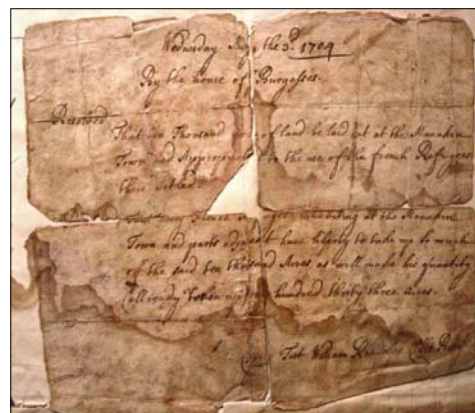 Wednesday May the 3d. 1704
By the house of Burgesses.
Resolved
That ten Thousand of land be laid out at the Manakin
Town and Appropriated to the use of the french Refugees
there setled
french inhabiting at the Manakin
Town and parts adjacent have liberty to take up so much
of the said ten thousand Acres as will make his quantity
allready taken up one hundred thirty three Acres.
Test William Randolph